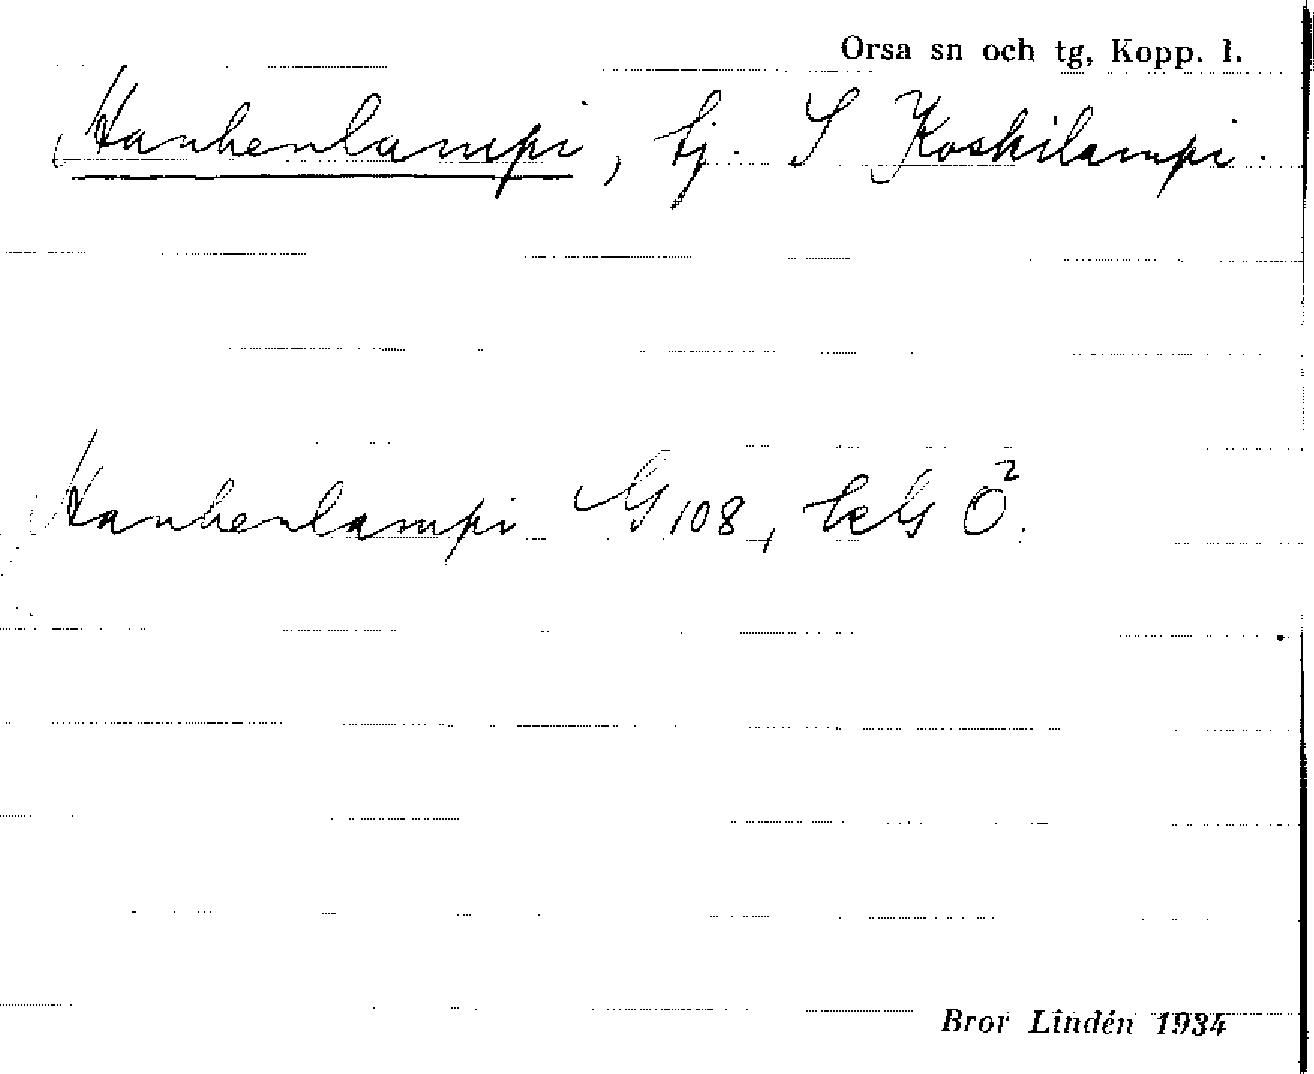 Orsa sn och tg, Kopp. l.
Hauhenlampi, tj. S Koskilampi.
Hauhenlampi G 108, bebG Ö².
Bror Lindén 1934